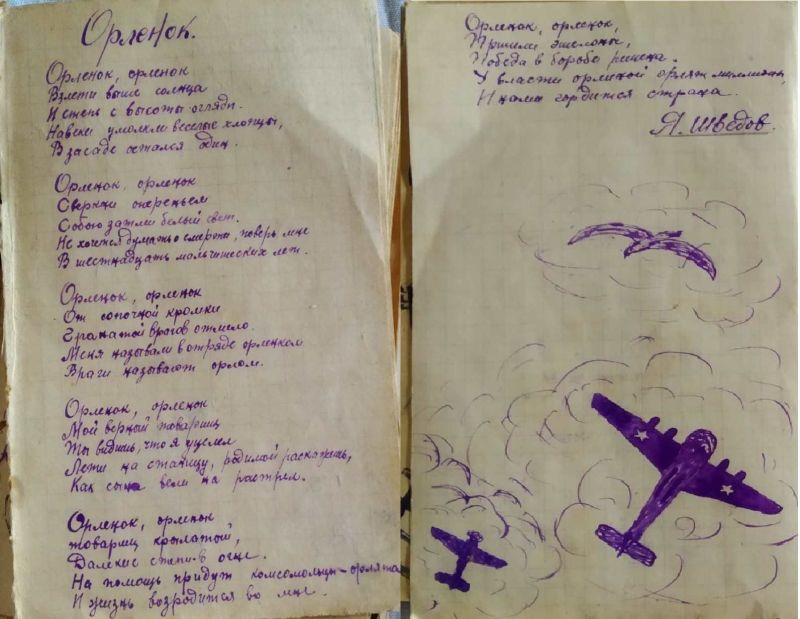 Орленок.
Орленок, орленок
Взлети выше солнца
И степь с высоты огляди.
Навеки умолкли веселые хлопцы,
В засаде остался один.
Орленок, орленок
Сверкни опереньем
Собою затми белый свет.
Не хочется думать о смерти, поверь мне
В шестнадцать мальчишеских лет.
Орленок, орленок
От сопочной кромки
Гранатой врагов отмело.
Меня называли в отряде орленком
Враги называют орлом.
Орленок, орленок
Мой верный товарищ
Ты видишь, что я уцелел
Лети на станицу, родимой расскажешь,
Как сына вели на растрел.
Орленок, орленок
товарищ крылатый,
Далекие степи в огне.
На помощь придут комсомольцы-орлята
И жизнь возродится во мне.
Орленок, орленок,
Пришли эшелоны,
Победа в борьбе решена.
У власти орлиной орлят миллионы,
И нами гордится страна.
Я. Шведов.